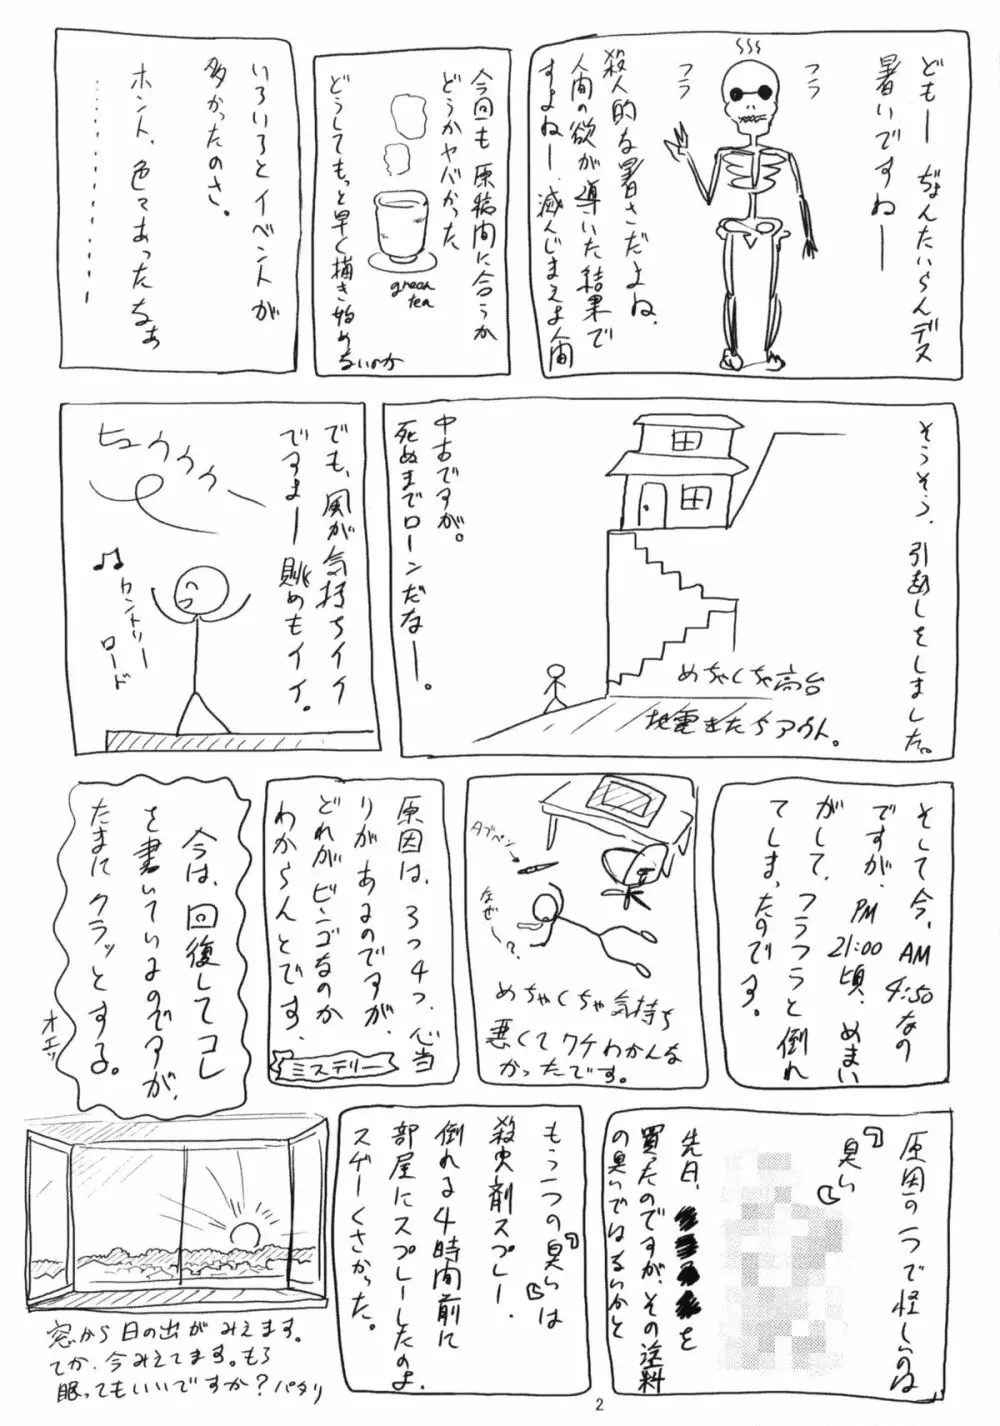 どもー ぢょんたいらんデス
暑いですねー
フラ
フラ
殺人的な暑さだよね、
人間の欲が導いた結果で
すよねー、滅んじまえよ人間
今回も原稿間に合うか
どうかヤバかった
green
tea
どうしてもっと早く描き始めないのか
いろいろとイベントが
多かったのさ。
ホント、色々あったなぁ
…………
そうそう、引越しをしました。
めちゃくちゃ高台
地震きたらアウト。
中古ですが。
死ぬまでローンだなー。
でも、風が気持ちイイ
ですよー 眺めもイイ。
ヒュウゥゥー
♫カントリー
ロード
そして今、AM4:50なの
ですが、PM21:00頃、めまい
がして、フラフラと倒れ
てしまったのです。
タブペン
なぜ〜?
めちゃくちゃ気持ち
悪くてワケわかんな
かったです。
原因は、3つ4つ、心当
りがあるのですが、
どれがビンゴなのか
わからんとです。
ミステリー
今は、回復してコレ
を書いているのですが、
たまにクラッとする。
オエッ
原因の一つで怪しいのは
「臭い」
先日、
を
買ったのですが、その塗料
の臭いではないかと
もう一つの「臭い」は
殺虫剤スプレー、
倒れる4時間前に
部屋にスプレーしたのよ、
スゲーくさかった。
窓から日の出がみえます。
てか、今みえてます。もろ
眠ってもいいですか？パタリ
2